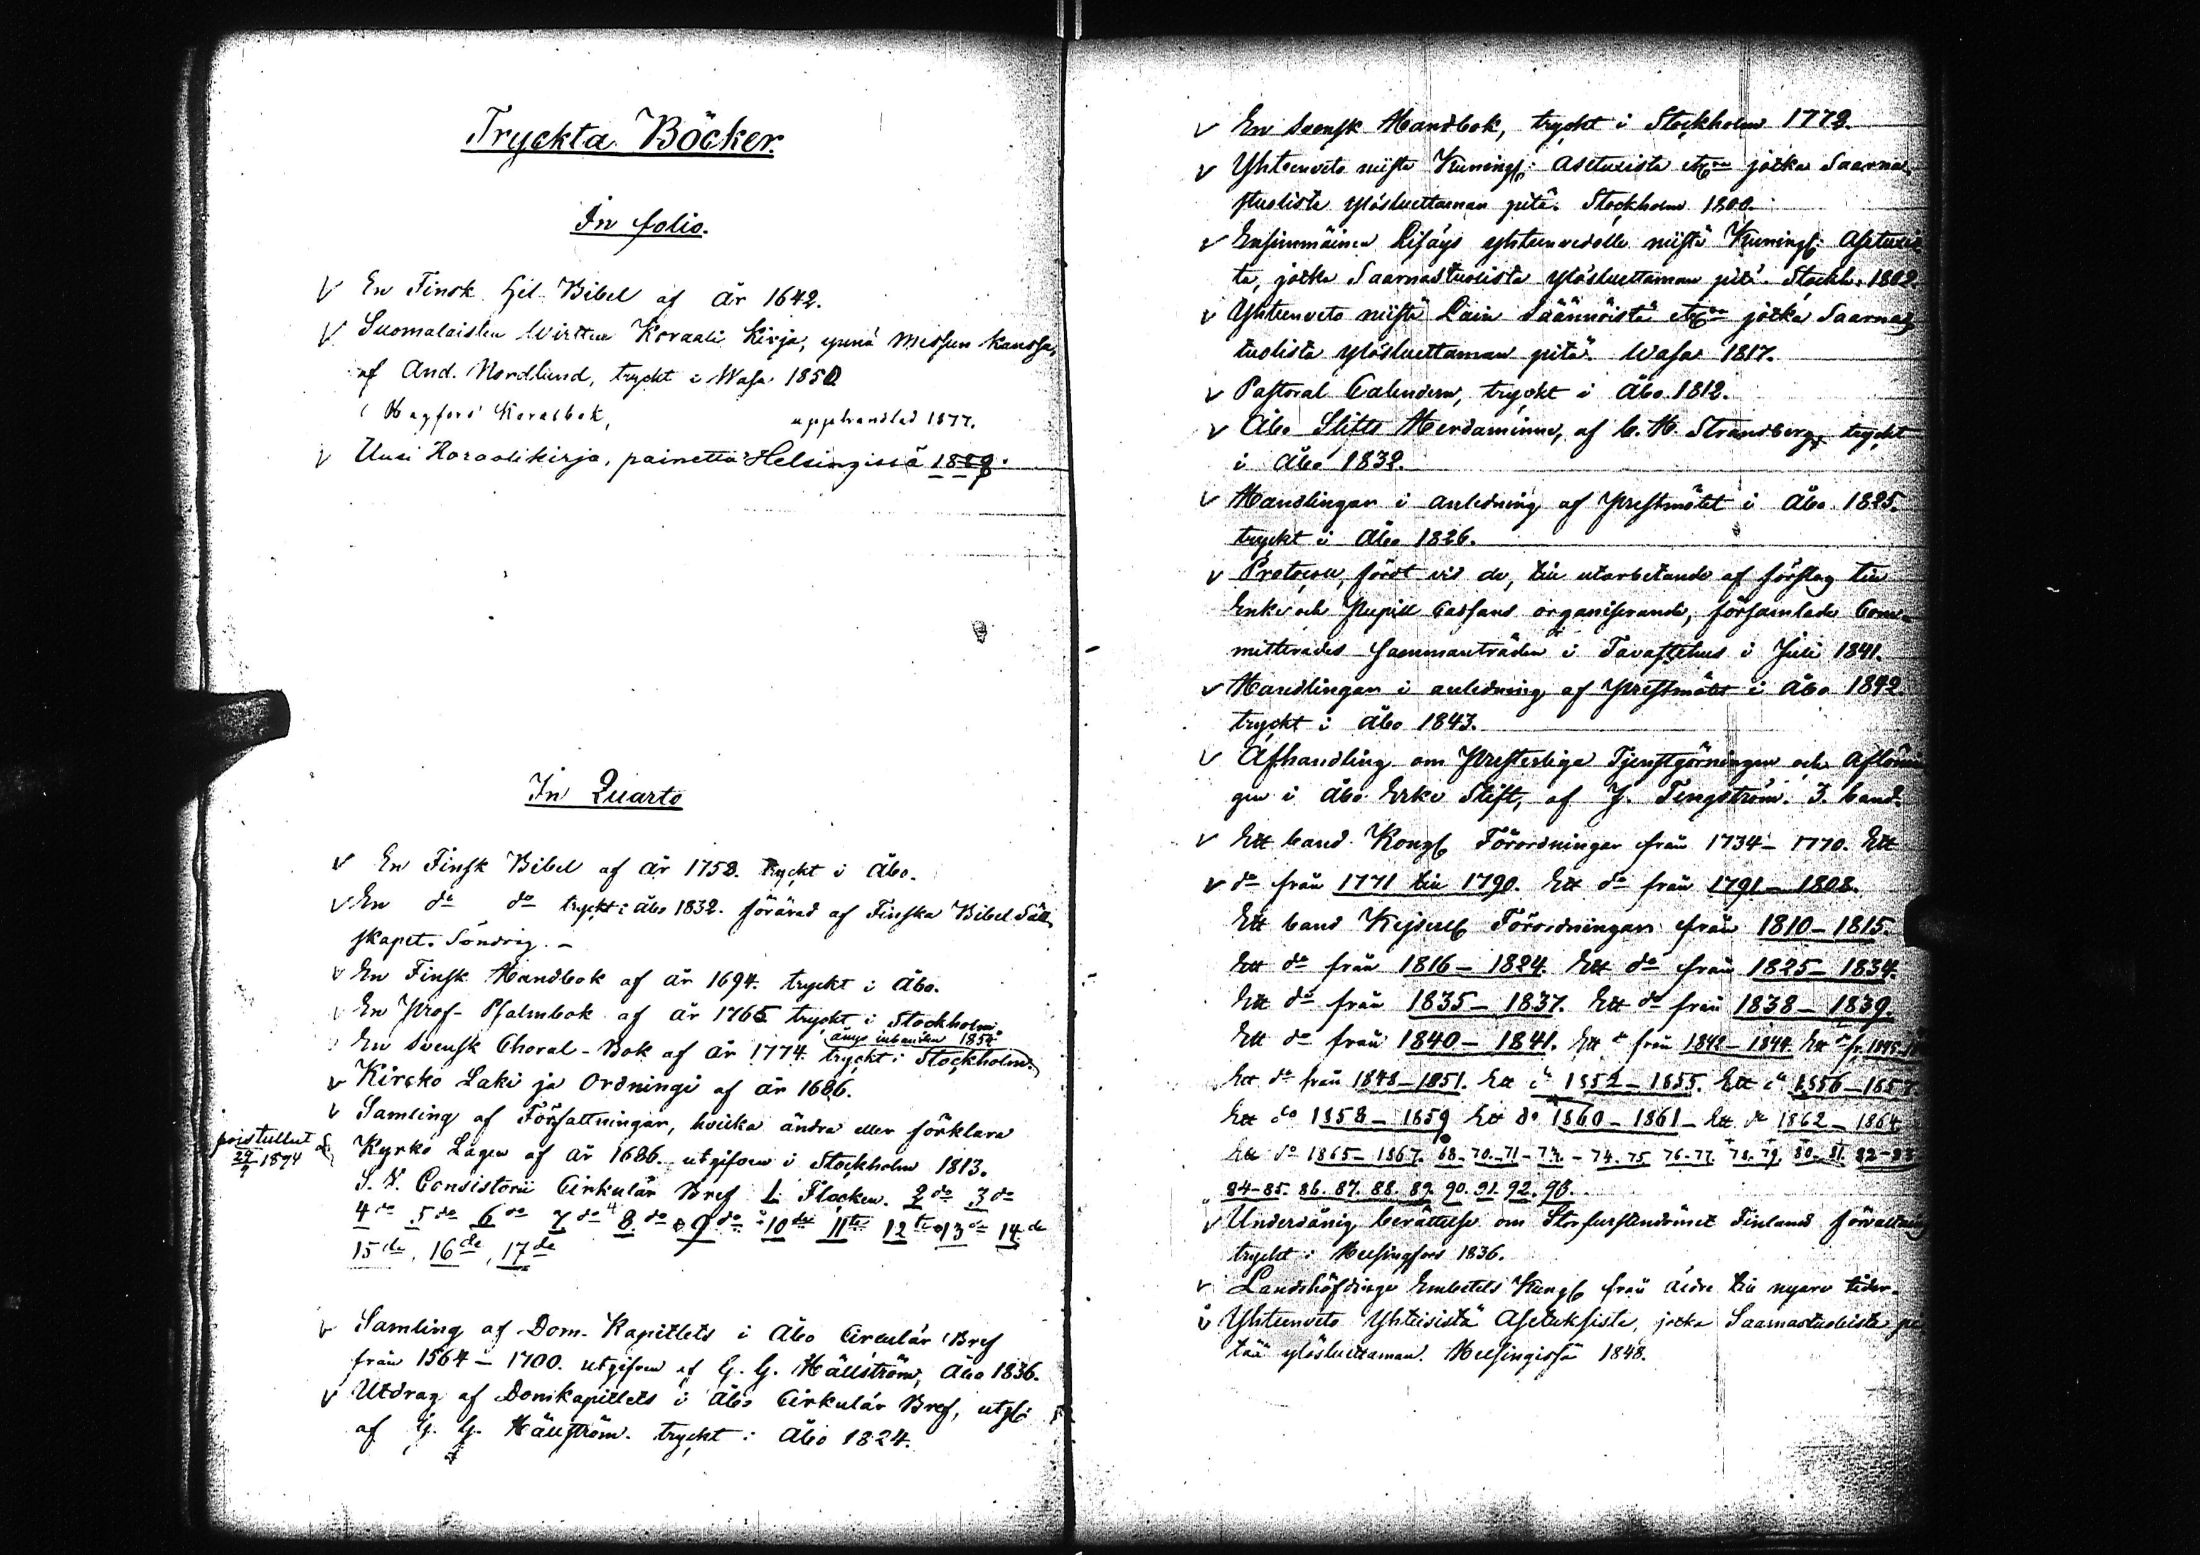 Tryckta Böcker.
In folio.
En Finsk Hel. Bibel af år 1642.
Suomalaisten Wirtten Koraali Kirja, ynnä Messun kanssa,
af And. Nordlund, tryckt i Wasa 1850
Hagfors Koralbok, upphandlad 1877.
Uusi Koraalikirja, painettu Helsingissä 1889.
In Quarto
En Finsk Bibel af år 1758. tryckt i Åbo.
En do do tryckt i åbo 1832. förärad af Finska Bibel Säll
skapet. Söndrig. –
En Finsk Handbok af år 1694. tryckt i Åbo.
En Prof- Psalmbok af år 1765 tryckt i Stockholm.
ånyo inbunden 1854
En Svensk Choral-Bok af år 1774. tryckt i Stockholm.
Kircko Laki ja Ordningi af år 1686.
Samling af Författningar, hvilka ändra eller förklara
poistullut
29/9 1894
Kyrko Lagen af år 1686. utgifven i Stockholm 1813.
Consistorii Cirkulär Bref 1. Flocken. 2 do 3 do
4 do 5 do 6 do 7 do 8 do 9 do 10 de 11te 12te 13 de 14 de
15 de, 16 de, 17 de
Samling af Dom-Kapitlets i Åbo Circulär Bref
från 1564 – 1700. utgifven af G. G. Hällström, Åbo 1836.
Utdrag af Domkapitlets i Åbo Cirkulär Bref, utg.
af G. G. Hällström. tryckt i Åbo 1824.
En Svensk Handbok, tryckt i Stockholm 1772.
Yhteenveto niistä Kuningl: Asetuxista etc jotka Saarna
stuolista ylösluettaman pitä. Stockholm 1800.
Ensimmäinen Lisäys yhteenvedolle niistä Kuningl: Asetuxis
ta, jotka Saarnastuolista ylösluettaman pitä. Stockh. 1802.
Yhteenveto niistä Lain Säännöistä etc jotka Saarnas
tuolista ylösluettaman pitä. Wasa 1817.
Pastoral Calendern, tryckt i Åbo 1812.
Åbo Stifts Herdaminne, af C. H. Strandberg, tryckt
i Åbo 1832.
Handlingar i anledning af Prestmötet i Åbo 1825.
tryckt i Åbo 1826.
Protocoll, fördt vid de, till utarbetande af förslag till
Enke och Pupill Cassans organiserande, församlade Com-
mitterades Sammanträden i Tavastehus i Juli 1841.
Handlingar i anledning af Prestmötet i Åbo 1842.
tryckt i Åbo 1843.
Afhandling om Presterliga Tjenstgörningen och Aflönin
gen i Åbo Erke Stift, af J. Tengström. 3. band.
Ett band Kongl Förordningar från 1734 – 1770. Ett
do från 1771 till 1790. Ett do från 1791 – 1808.
Ett band Kejserl Förordningar från 1810 – 1815.
Ett do från 1816 – 1824. Ett do från 1825 – 1834.
Ett do från 1835 – 1837. Ett do från 1838 – 1839.
Ett do från 1840 – 1841. Ett d från 1842 – 1844. Ett d fr. 1845
Ett do från 1848 – 1851. Ett d 1852 – 1855. Ett d 1856 – 1857.
Ett do 1858 – 1859 Ett do 1860 – 1861 – Ett do 1862 – 1864
Ett do 1865 – 1867. 68-70-71-73.-74.75 76-77. 78.79. 80.81. 82-83
84-85. 86. 87. 88. 89. 90. 91. 92. 93.
Underdånig berättelse om Storfurstendömet Finlands förvaltning
tryckt i Helsingfors 1836.
Landshöfdinge Embetets Kungl från äldre till nyare tider.
Yhteenveto Yhteisistä Asetuksista, jotka Saarnastuolista pi
tää ylösluettaman. Helsingissä 1848.